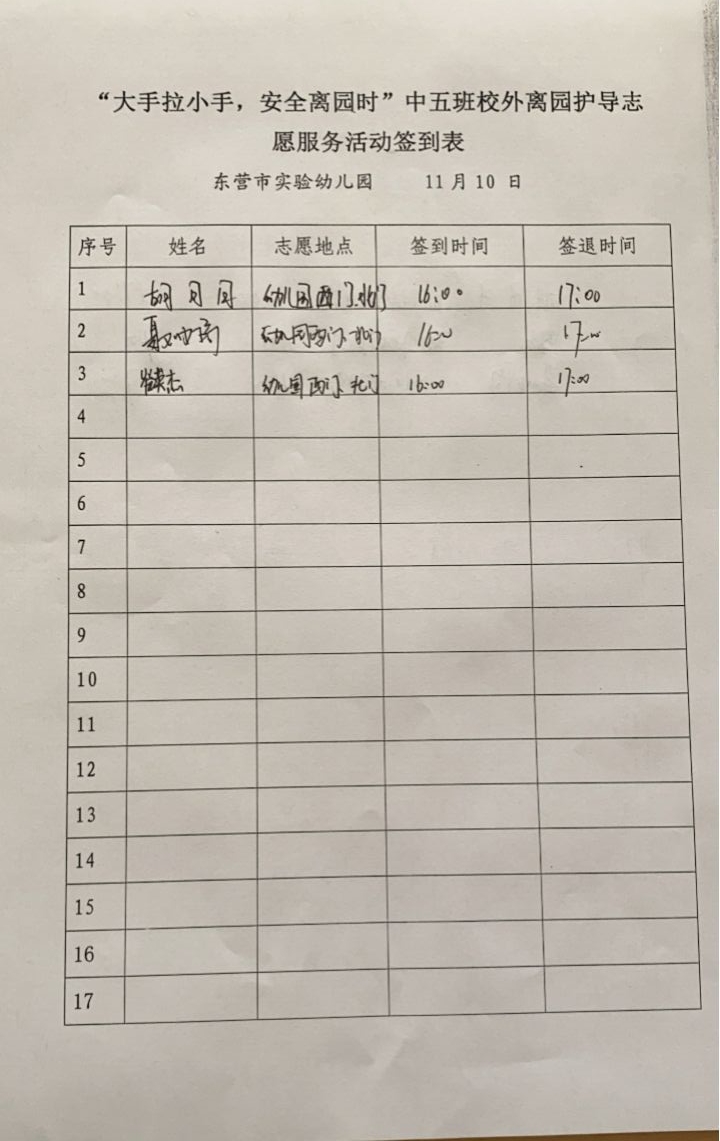 “大手拉小手，安全离园时”中五班校外离园护导志
愿服务活动签到表
东营市实验幼儿园 11月10日
序号 姓名 志愿地点 签到时间 签退时间
1 胡月月 幼儿园西门、北门 16:00 17:00
2 幼儿园西门、北门 16:00 17:00
3 幼儿园西门、北门 16:00 17:00
4
5
6
7
8
9
10
11
12
13
14
15
16
17